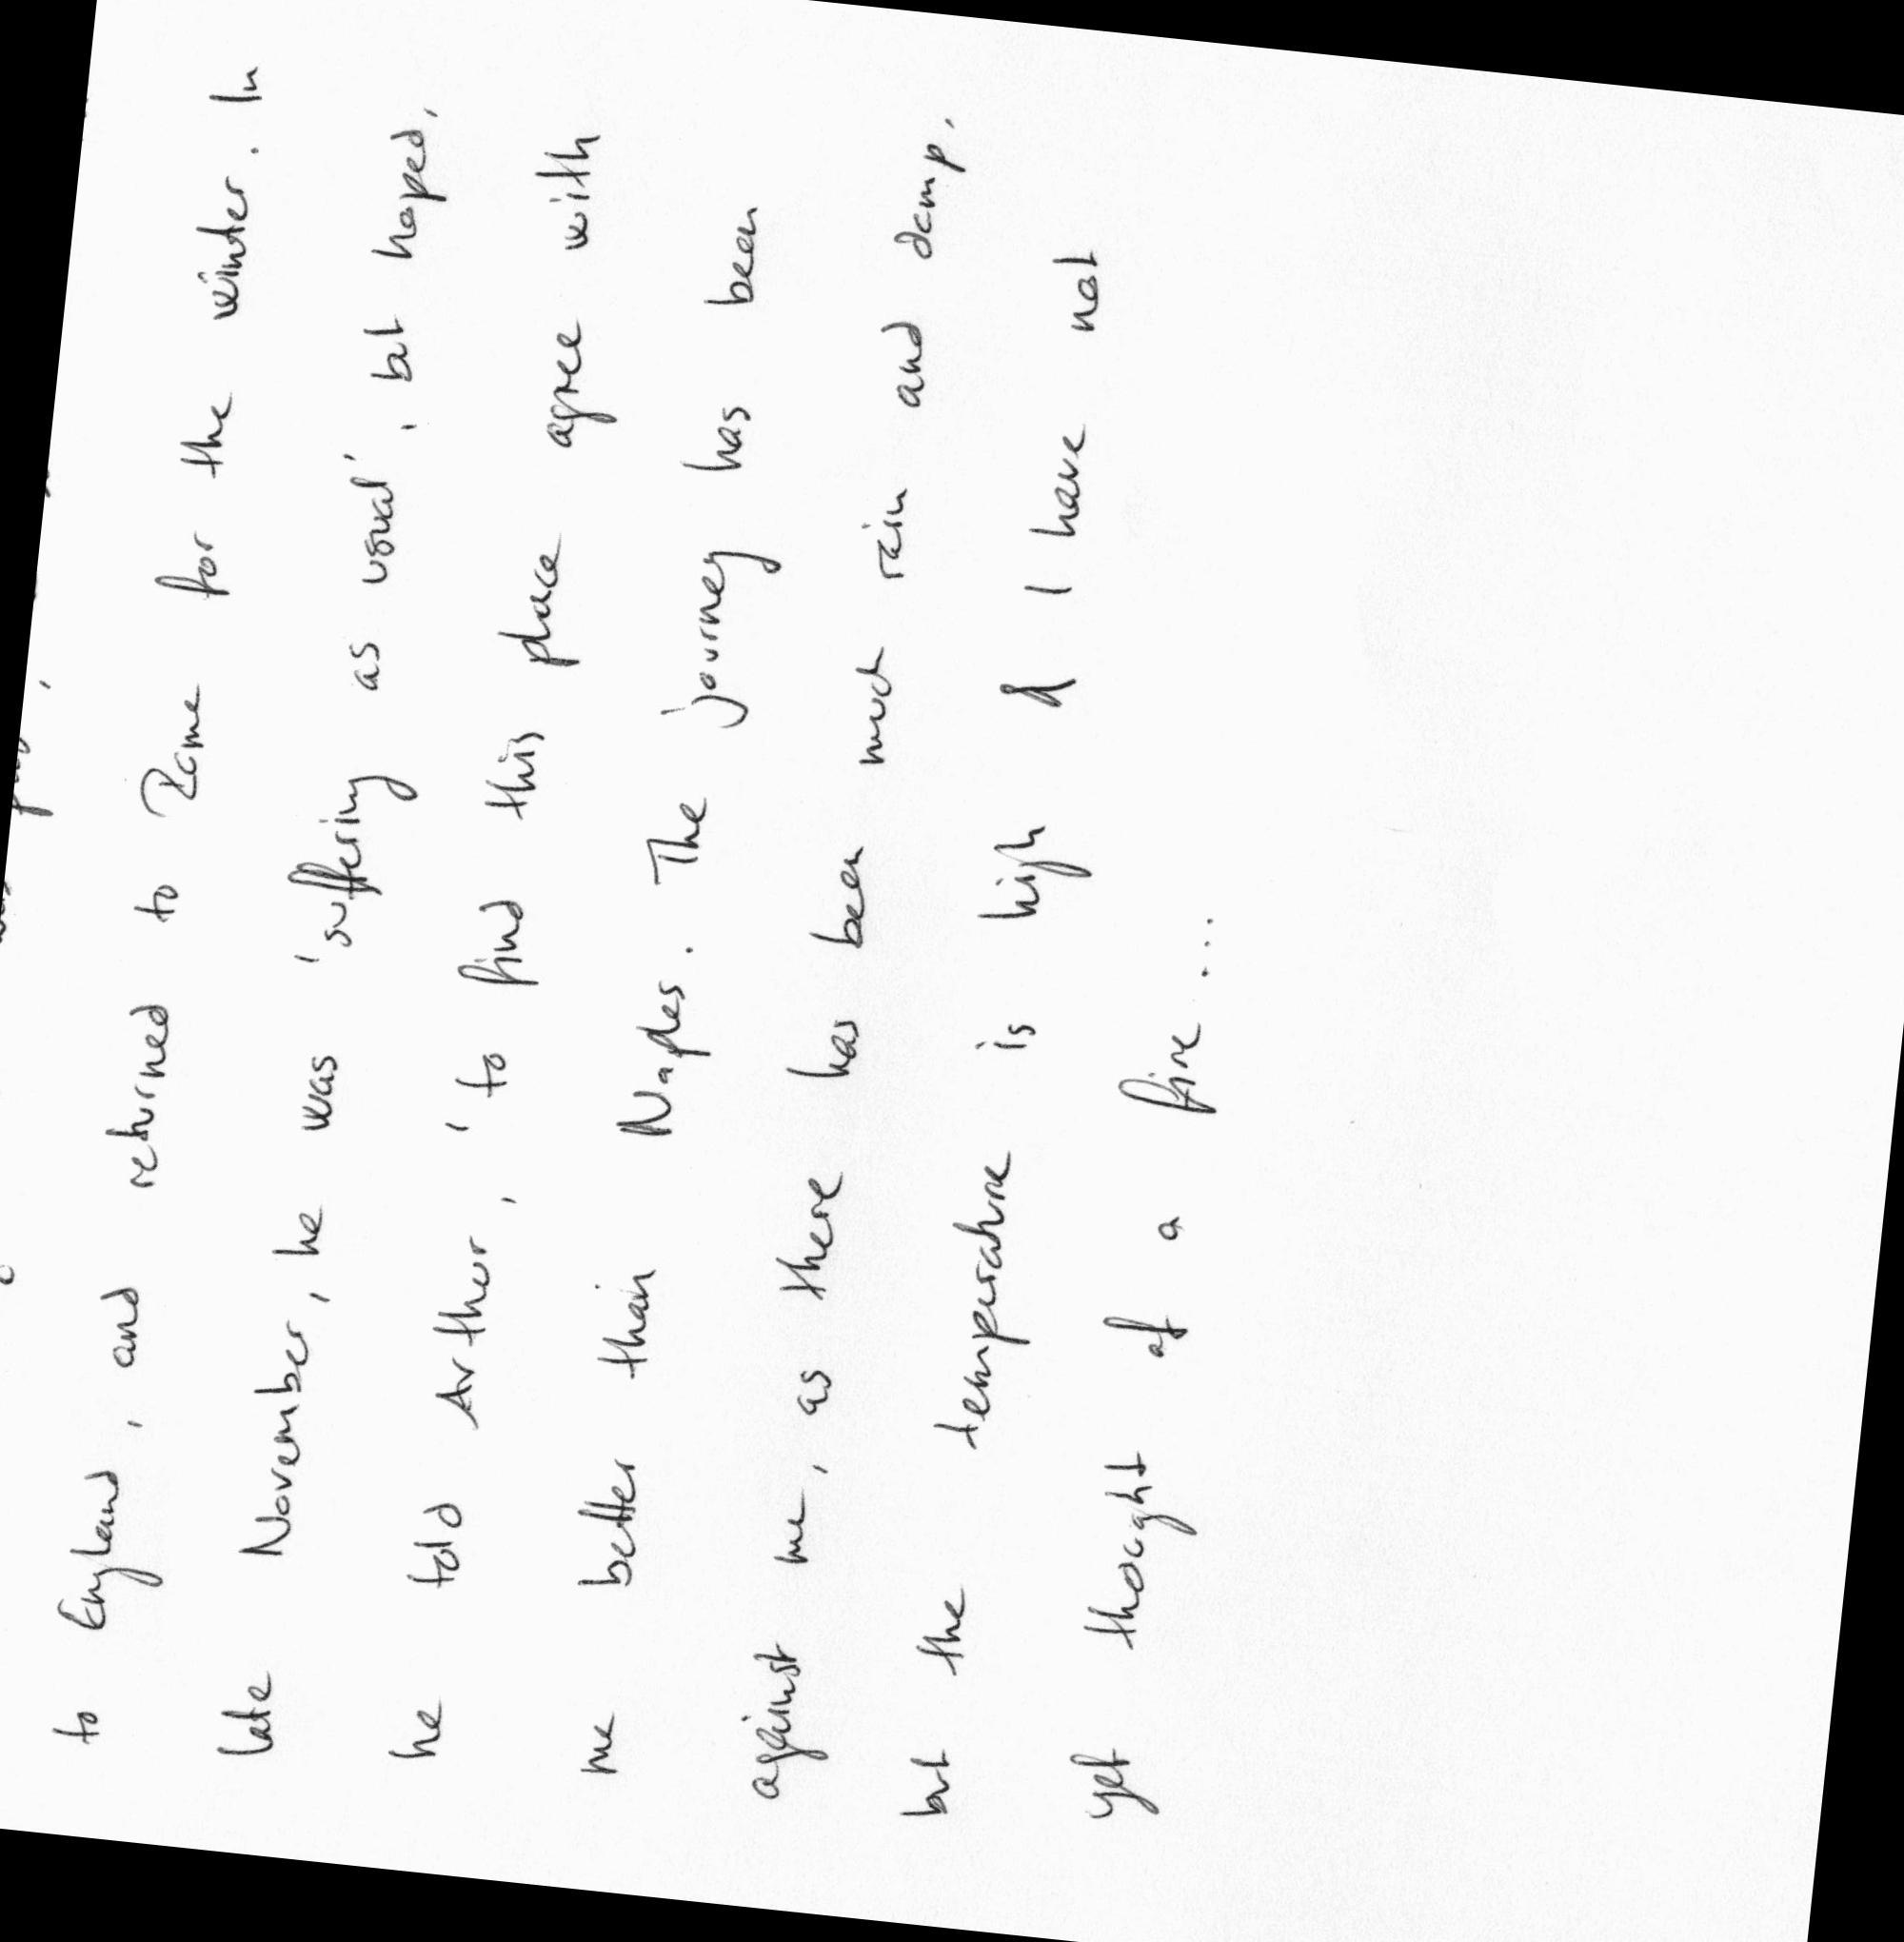 to England, and returned to Rome for the winter. In
late November, he was 'suffering as usual', but hoped,
he told Arthur, 'to find this place agree with
me better than Naples. The journey has been
against me, as there has been much rain and damp,
but the temperature is high & I have not
yet thought of a fire ...